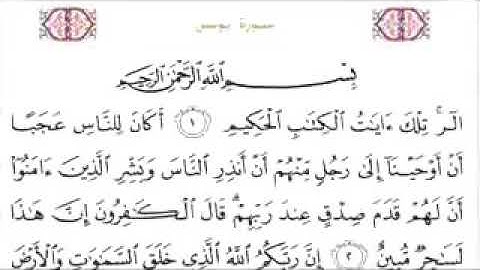 سورة يونس
بِسْمِ ٱللَّهِ ٱلرَّحْمَٰنِ ٱلرَّحِيمِ
الٓر ۚ تِلْكَ ءَايَٰتُ ٱلْكِتَٰبِ ٱلْحَكِيمِ ١ أَكَانَ لِلنَّاسِ عَجَبًا
أَنْ أَوْحَيْنَآ إِلَىٰ رَجُلٍ مِّنْهُمْ أَنْ أَنذِرِ ٱلنَّاسَ وَبَشِّرِ ٱلَّذِينَ ءَامَنُوٓا۟
أَنَّ لَهُمْ قَدَمَ صِدْقٍ عِندَ رَبِّهِمْ ۗ قَالَ ٱلْكَٰفِرُونَ إِنَّ هَٰذَا
لَسَٰحِرٌ مُّبِينٌ ٢ إِنَّ رَبَّكُمُ ٱللَّهُ ٱلَّذِى خَلَقَ ٱلسَّمَٰوَٰتِ وَٱلْأَرْضَ